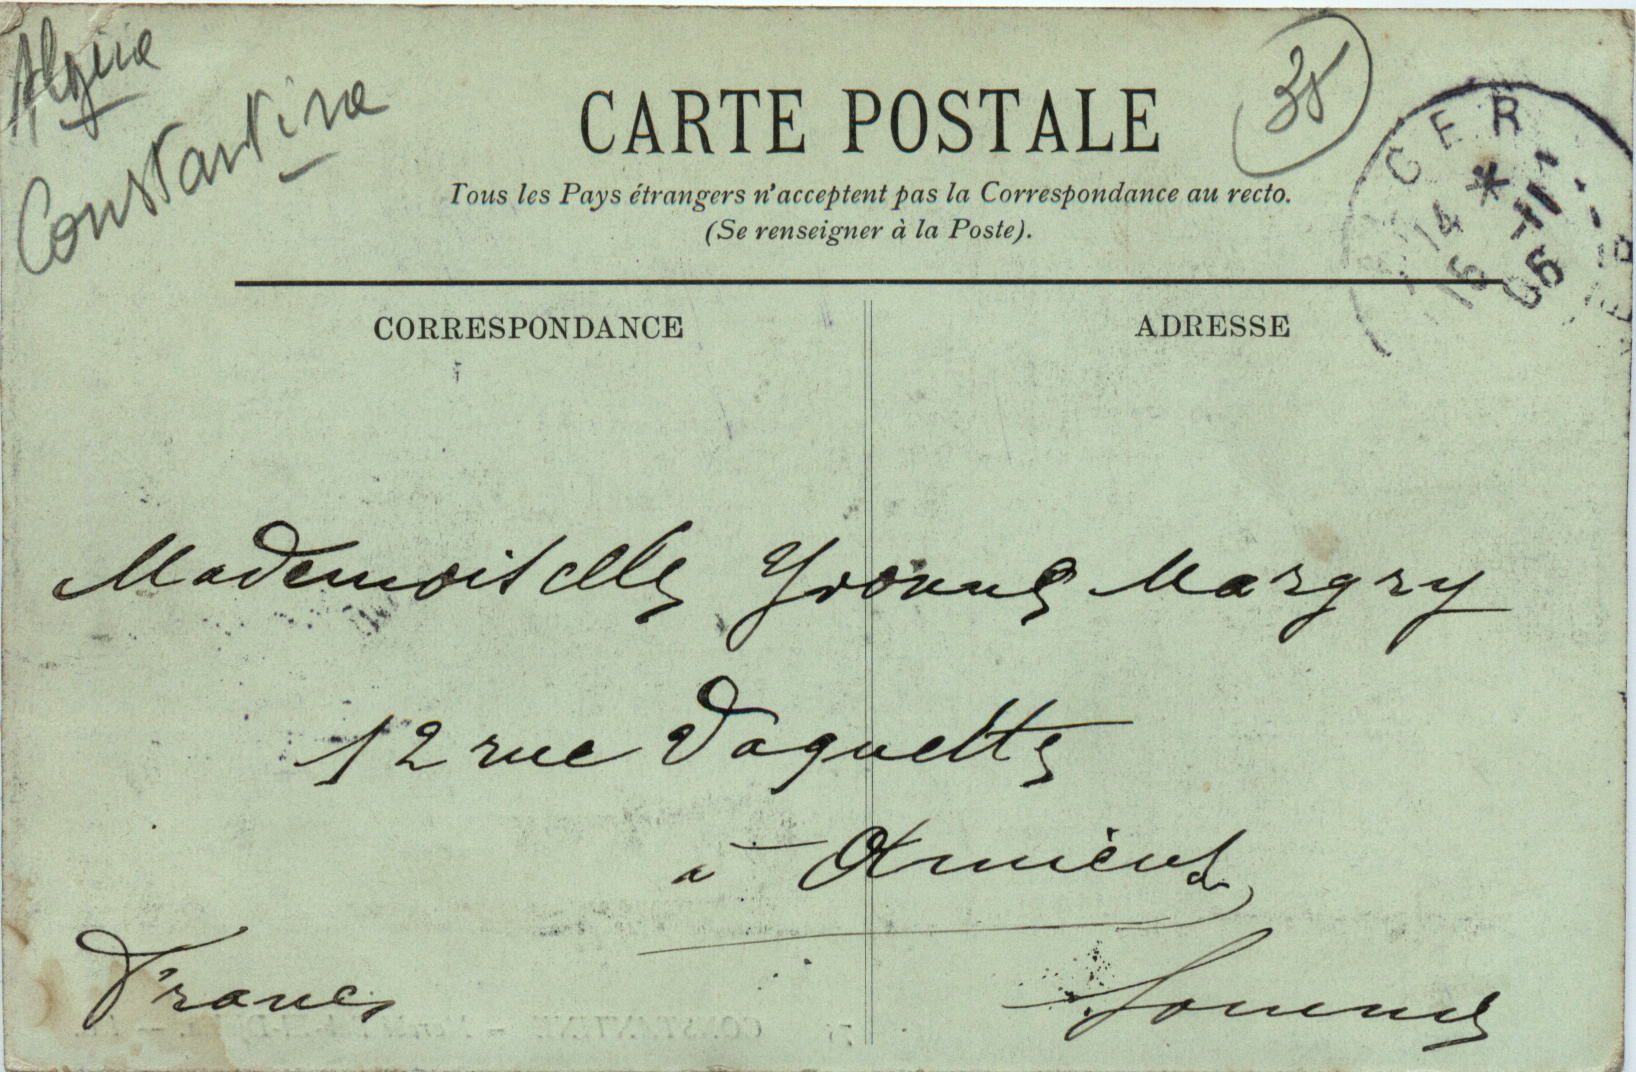 Algérie
Constantine
CARTE POSTALE
38
Tous les Pays étrangers n'acceptent pas la Correspondance au recto.
(Se renseigner à la Poste).
GER
14
15 11 06
CORRESPONDANCE
ADRESSE
Mademoiselle Yvonne Margry
12 rue Vaquette
à Amiens
France
Somme